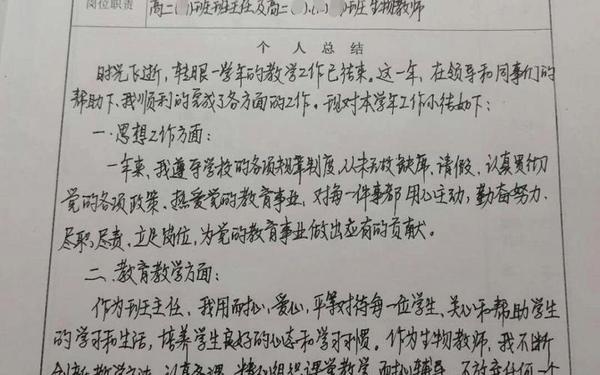 岗位职责
高二( )班班主任及高二( )、( )、( )班生物教师
个人总结
时光飞逝，转眼一学年的教学工作已结束。这一年，在领导和同事们的
帮助下，我顺利的完成了各方面的工作。现对本学年工作小结如下：
一、思想工作方面：
一年来，我遵守学校的各项规章制度，从未无故缺席、请假。认真贯彻
党的各项政策、热爱党的教育事业，对每一件事都用心主动，勤奋努力。
尽职、尽责、立足岗位，为党的教育事业做出应有的贡献。
二、教育教学方面：
作为班主任，我用耐心，爱心，平等对待每一位学生、关心和帮助学生
的学习和生活，培养学生良好的心态和学习习惯。作为生物教师，我不断
创新教学方法，认真备课，精心组织课堂教学，耐心辅导，不放弃任何一个